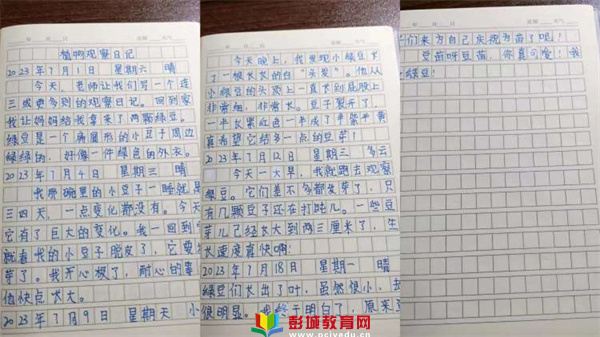 植物观察日记
2023年7月1日 星期六 晴
今天，老师让我们写一个连
三级更多则的观察日记。回到家
我让妈妈给我拿来了两颗绿豆。
绿豆是一个椭圆形的小豆子周边
绿绿的，好像一件绿色的外衣。
2023年7月4日 星期三 晴
我那碗里的小豆子一睡就是
三四天，一点变化都没有。今天
它有了巨大的变化。我一回到
就看我的小豆子脱皮了，它要
芽了。我开心极了，耐心的等
他快点长大。
2023年7月9日 星期天 小
今天晚上，我发现小绿豆长
了一根长长的白“头发”。他从
小绿豆的头顶上一直长到屁股上
非常细，非常长。豆子裂开了，
一半长黑红色一半成了半紫半黄
真希望它结多一点的豆芽！
2023年7月12日 星期三 多云
今天一大早，我就跑去观察
绿豆。它们差不多都发芽了，只
有几颗豆子还在打盹儿。一些豆
芽儿己经长大到两三厘米了，生
长速度真快啊！
2023年7月18日 星期一 晴
绿豆们长出了叶，虽然很小，
很明显。我终于明白了，原来
们来为自己庆祝为苗了呢！
豆苗呀豆苗，你真可爱！我
绿豆！
彭城教育网
www.pcjydu.cn